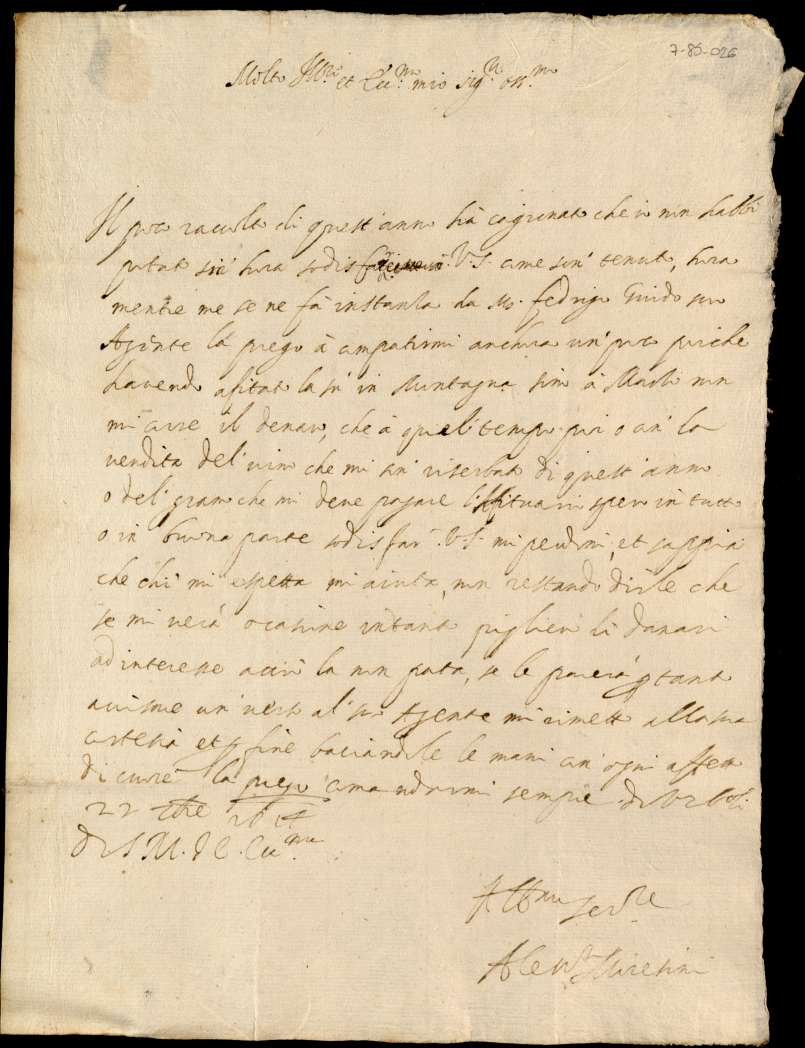 7-85-026
Molto Ill.re et Ecc.mo mio sig.r oss.mo
Il poco racolto di quest'anno hà cagionato che io non habbi
potuto sin' hora sodisfare V.S. come son' tenuto, hora
mentre me se ne fà instanza da M. Fedrigo Guido suo
Agente la prego à compatirmi anchora un' poco poiche
havendo afitato la in Montagna sino à Marti non
mi corre il denaro, che à quel' tempo poi o con' la
vendita del' vino che mi son' riserbato di quest'anno
o del' grano che mi deve pagare l'Afituario spero in tutto
o in buona parte sodisfar V.S. mi perdoni, et sappia
che chi mi aspetta mi aiuta, non restando dirle che
se mi verà ocasione intanto piglierò li danari
ad interesse acciò la non pata, se le parerà tanto
avisone un' verso al' suo Agente mi rimetto alla sua
cortesia et p fine baciandole le mani con' ogni affetto
di cuore la prego comandarmi sempre. di
22
di S M. I E. Ecc.ma
Aff.mo ser.re
Aless.o